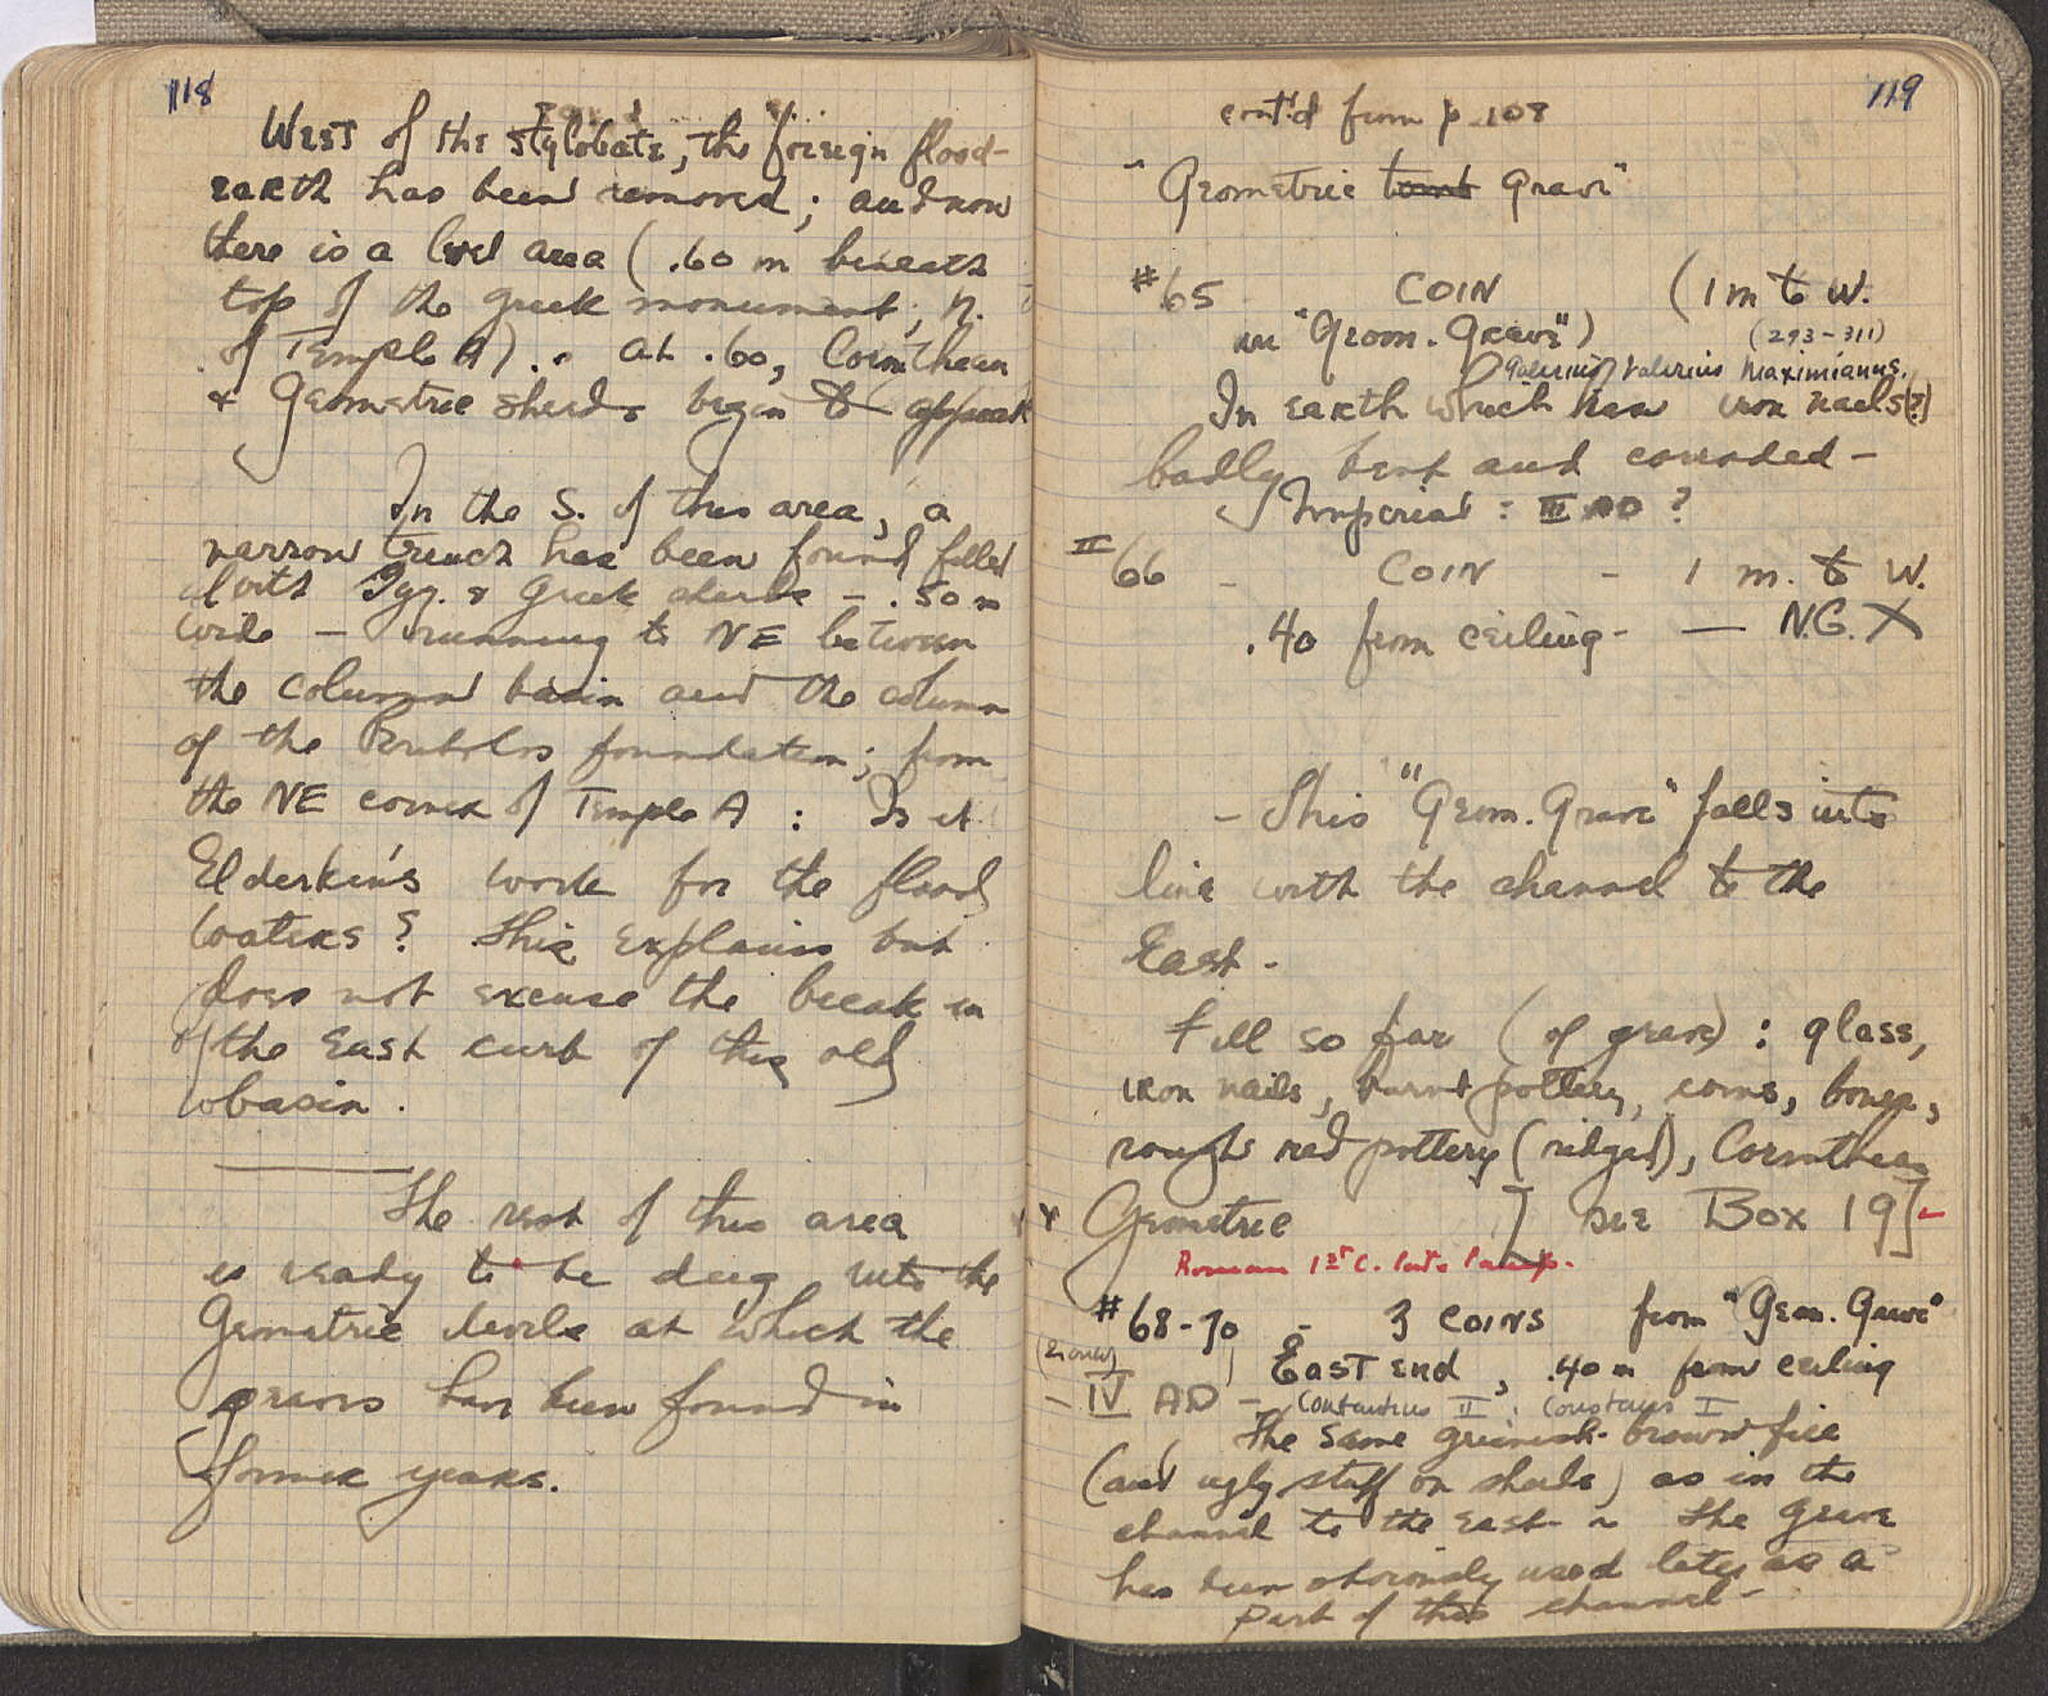 118
West of the stylobate, the foreign flood-
earth has been removed; and now
there is a level area (.60 m beneath
top of the Greek monument, n.
of Temple A). At .60, Corinthian
+ Geometric sherds begin to appear
In the S. of this area, a
narrow trench has been found filled
with Byz. & Greek sherds - .50 m
wide - running to NE between
the column basin and the column
of the Peribolos foundation; from
the NE corner of Temple A : Is it
Elderkin's work for the flood
waters? This explains but
does not excuse the break in
the East curb of this old
basin.
The rest of this area
is ready to be dug into the
Geometric levels at which the
graves have been found in
former years.
119
cont'd from p. 108
"Geometric tomb Grave"
#65 COIN (1 m to W.
in "Geom. Grave")
(293-311)
Galerius Valerius Maximianus.
In earth which has iron nails(?)
badly bent and corroded -
Imperial : III AD ?
II 66 - COIN - 1 m. to W.
.40 from ceiling - — N.G. X
- This "Geom. Grave" falls into
line with the channel to the
East -
Fill so far (of grave) : glass,
iron nails, burnt pottery, coins, bones,
rough red pottery (ridged), Corinthian
+ Geometric ] see Box 19]
Roman 1st C. Late
#68-70 - 3 coins from "Geom. Grave"
East end, .40 m from ceiling
- IV AD - Constantius II, Constans I
The same greenish-brown fill
(and ugly stuff on sherds) as in the
channel to the east - The Grave
has been obviously used later as a
part of this channel -